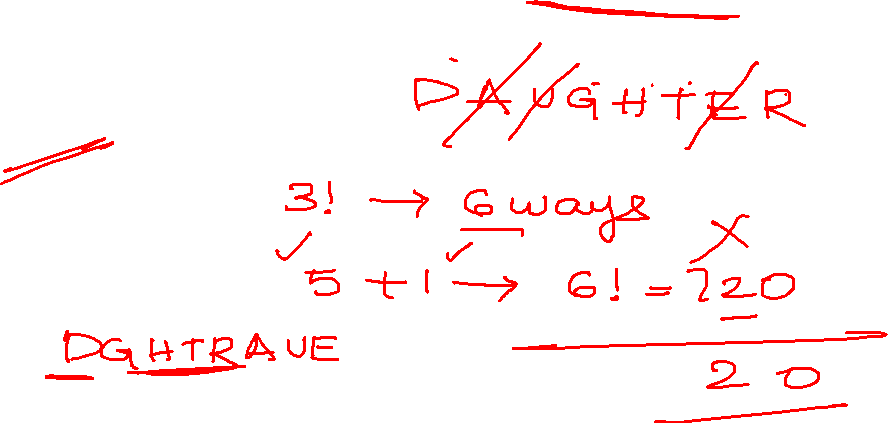 DAUGHTER
3! → 6 ways
5 + 1 → 6! = 720
×
DGHTRAUE
20